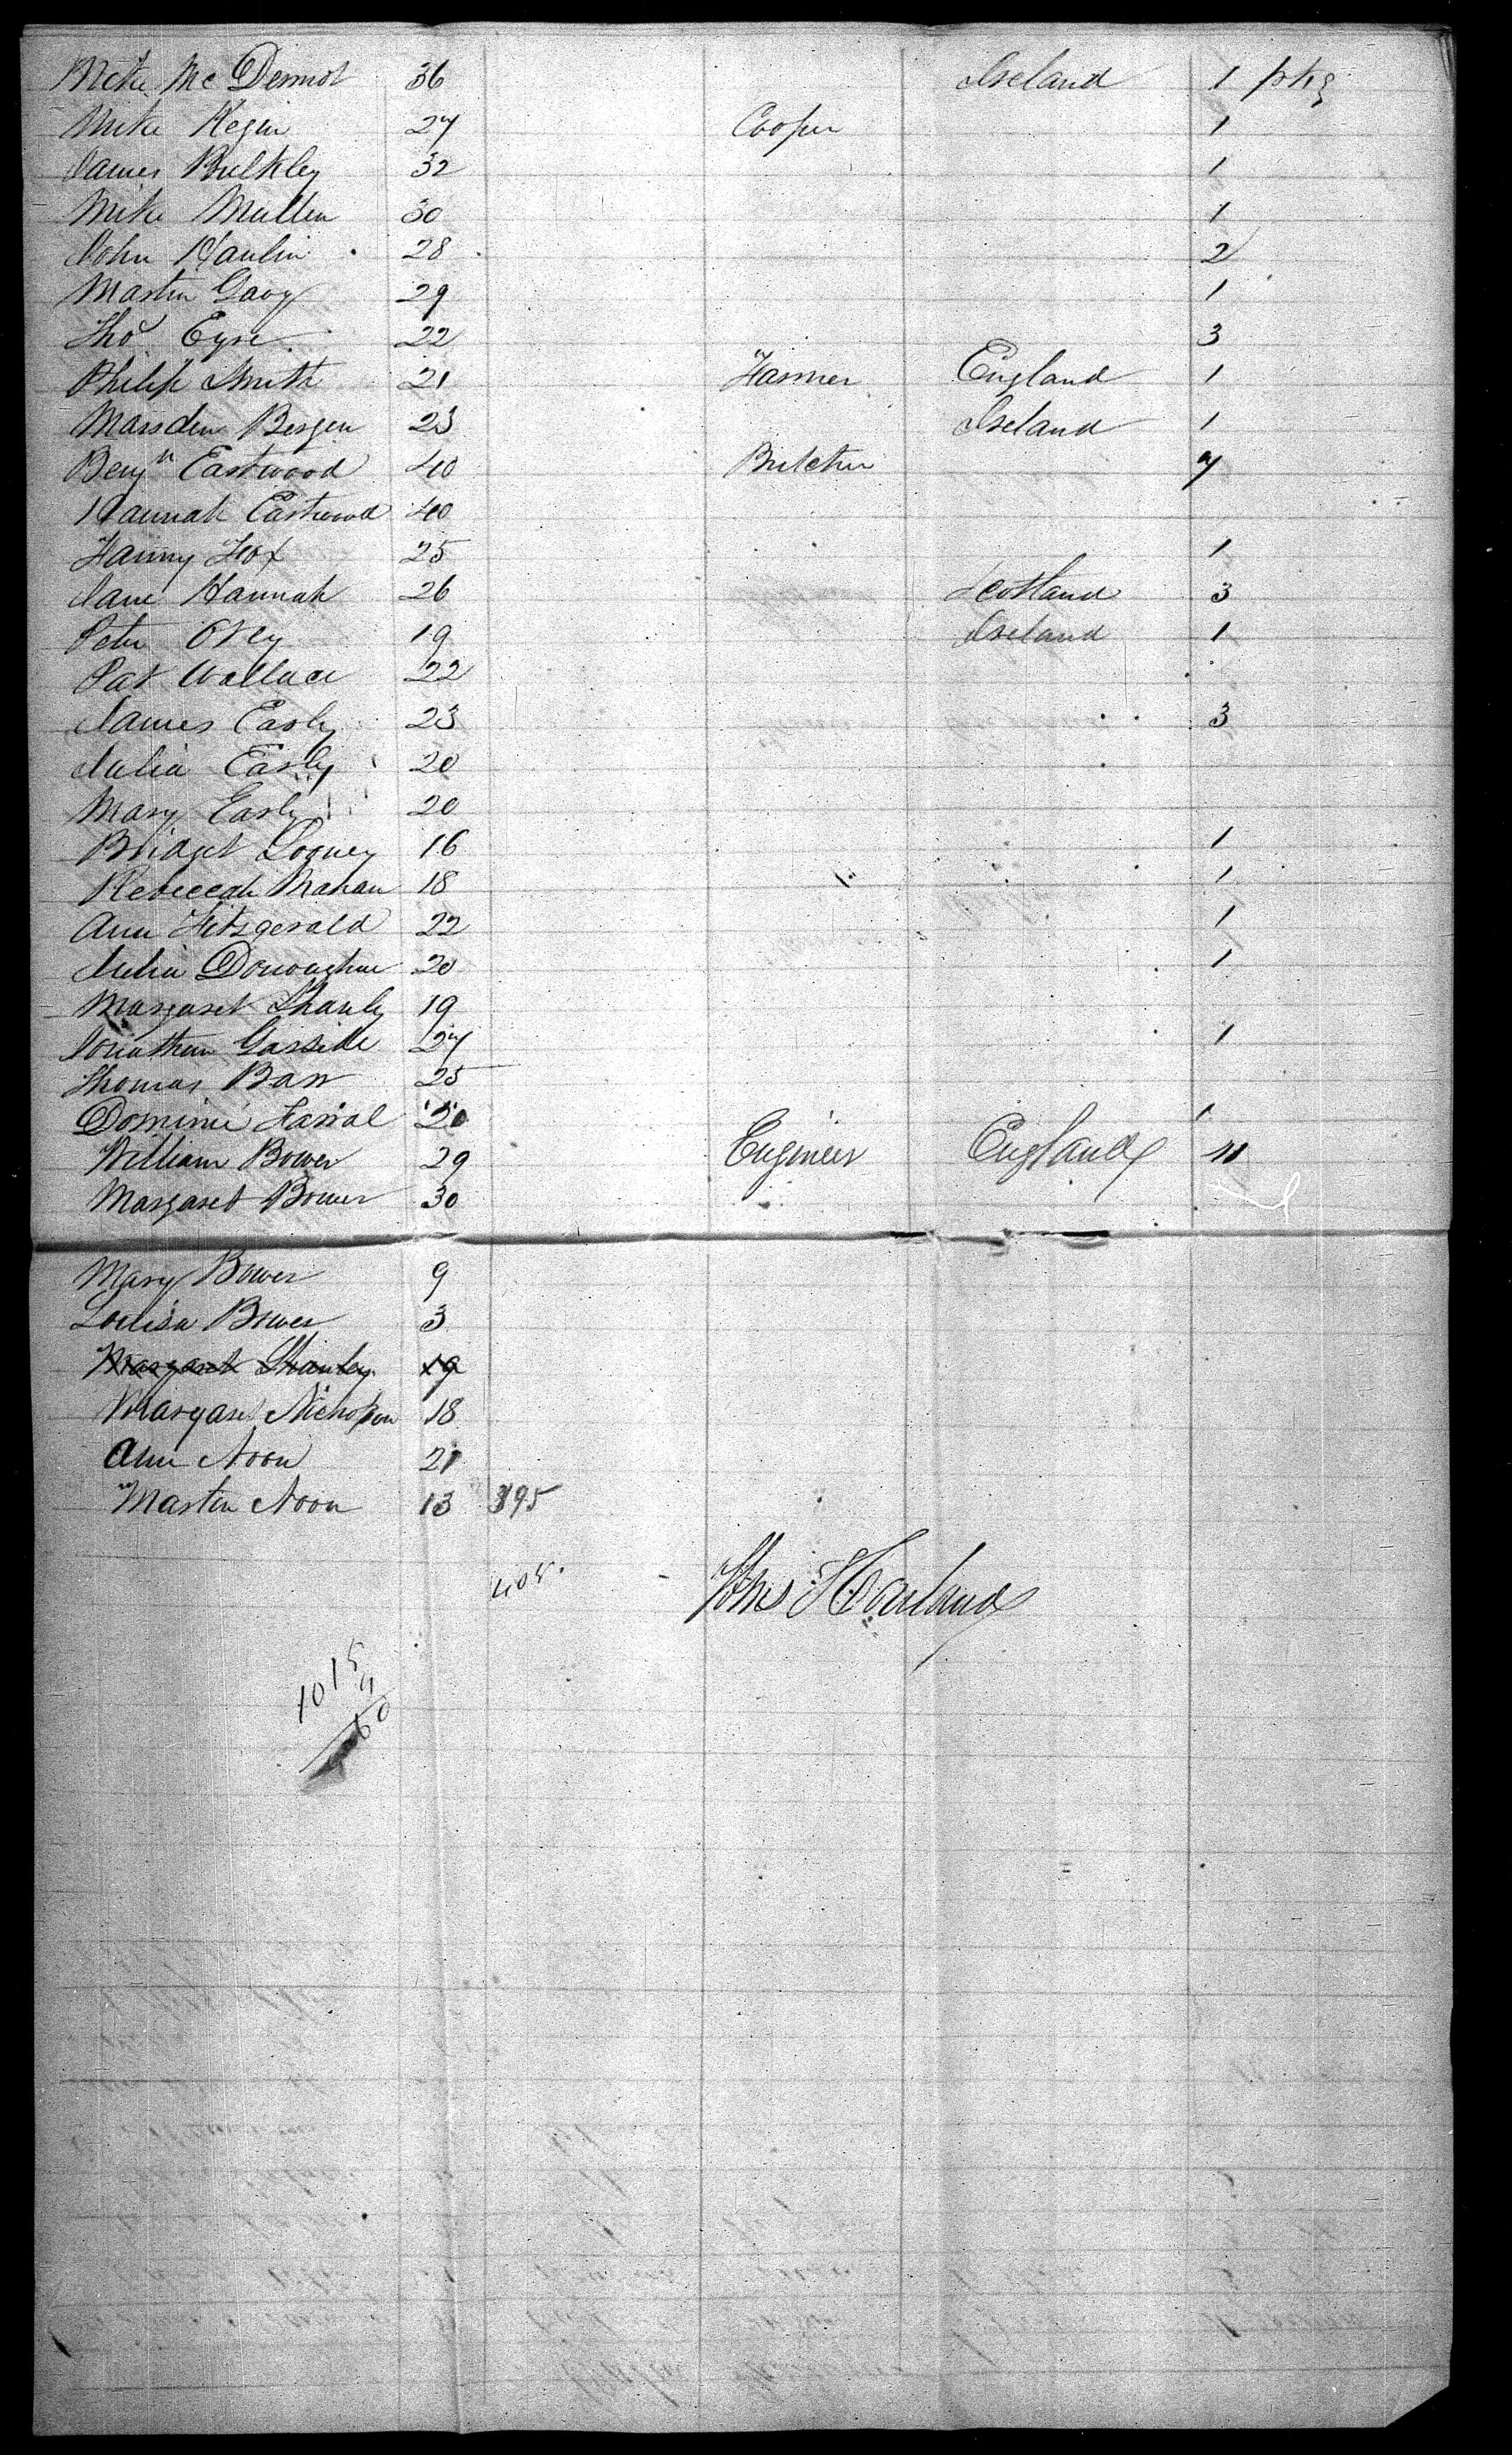 Mike Mc Dermot 36 Ireland 1 pkg
Mike Kegin 27 Cooper 1
James Bulkley 32 1
Mike Mullen 30 1
John Hanlin 28 2
Martin Gavy 29 1
Tho Eyre 22 3
Philip Smith 21 Farmer England 1
Marsden Bergen 23 Ireland 1
Benjn Eastwood 40 Butcher 7
Hannah Eastwood 40
Fanny Fox 25 1
Jane Hannah 26 Scotland 3
Peter 19 Ireland 1
Pat Wallace 22
James Early 23 3
Julia Early 20
Mary Early 20
Bridget Looney 16 1
Rebeccah Mahan 18 1
Ann Fitzgerald 22 1
Julia Donoughue 20 1
Margaret Shanly 19
Jonathan Garside 27 1
Thomas Barr 25
Dominic Farral 20 1
William Bower 29 Engineer England 11
Margaret Bower 30
Mary Bower 9
Louisa Bower 3
Margaret Shanley 19
Margaret Nicholson 18
Ann Noon 21
Martin Noon 13 395
405.
Harland
1015